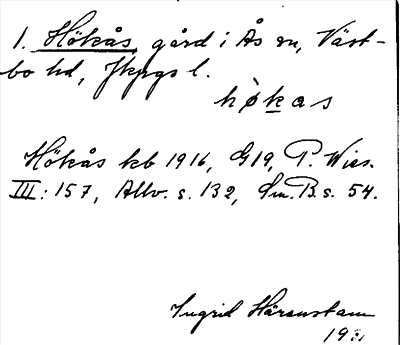 1. Hökås, gård i Ås sn, Väst-
bo hd, Jkpgs l.
hö̀kas
Hökås kb 1916, G19, P. Wies.
III: 157, Allv. s. 132, Sm. B. s. 54.
Ingrid Härenstam
19